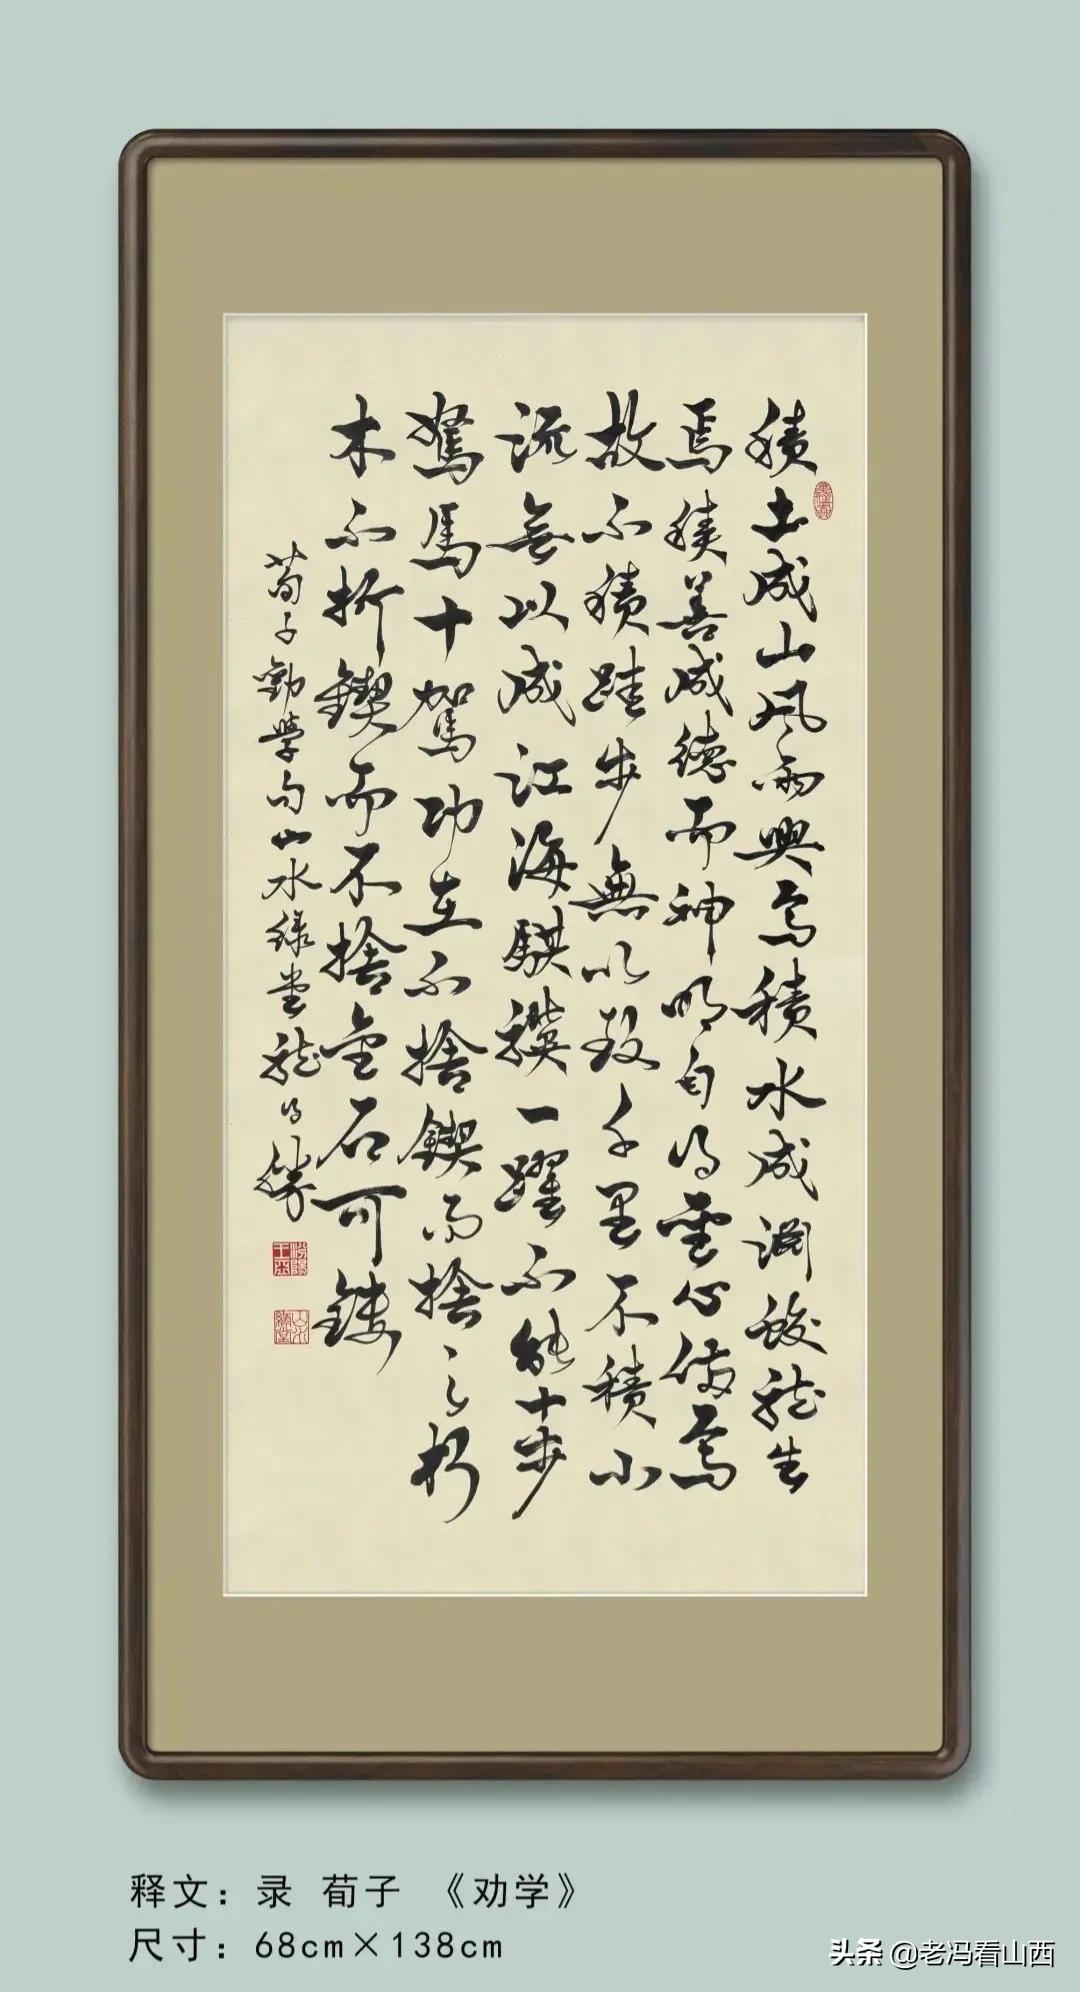 積土成山風雨興焉積水成淵蛟龍生
焉積善成德而神明自得聖心備焉
故不積跬步無以致千里不積小
流無以成江海騏驥一躍不能十步
駑馬十駕功在不捨鍥而捨之朽
木不折鍥而不捨金石可鏤
荀子勸學句山水緣堂龍得勝
释文：录 荀子 《劝学》
尺寸：68cm×138cm
头条 @老冯看山西